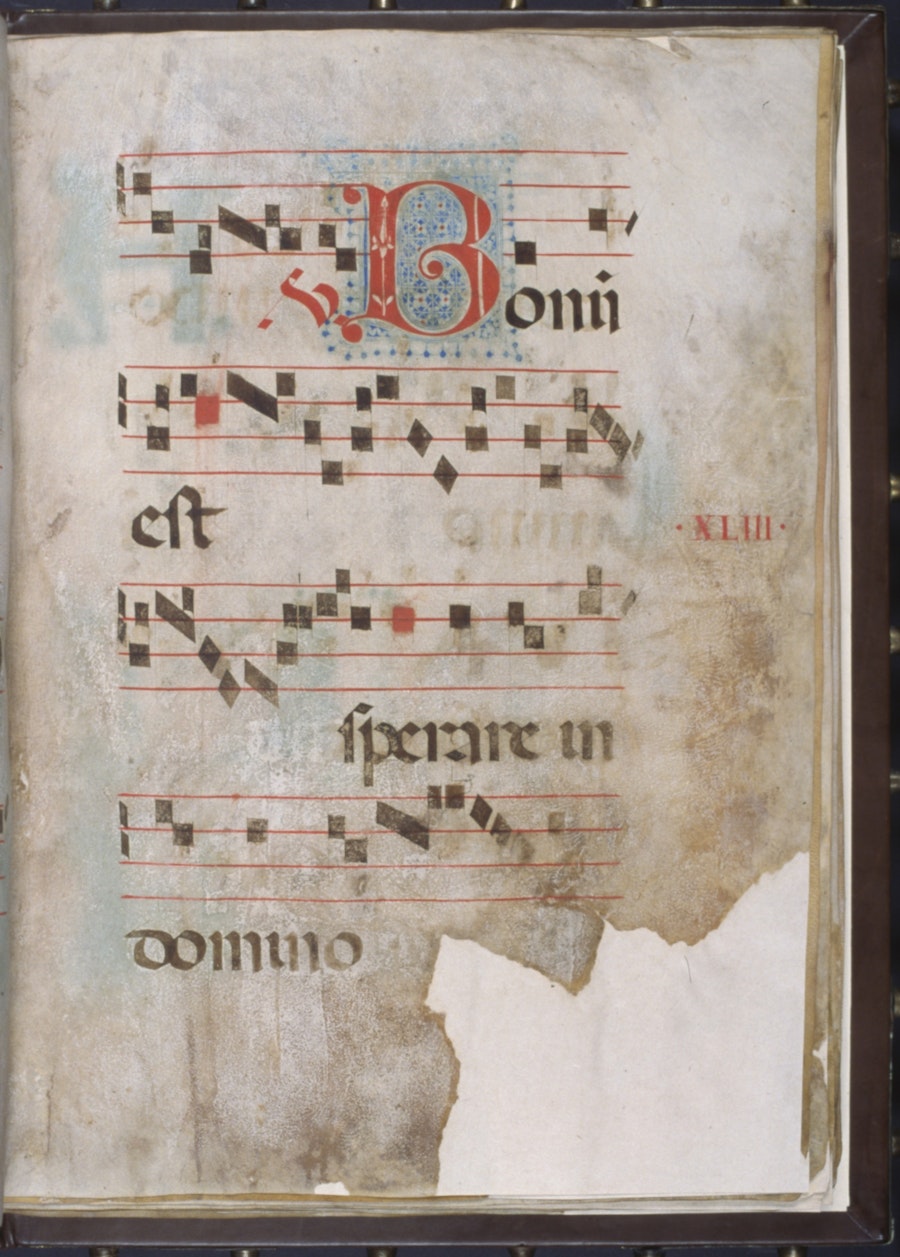 ℣. Bonū
est
·XLIII·
sperare in
domino